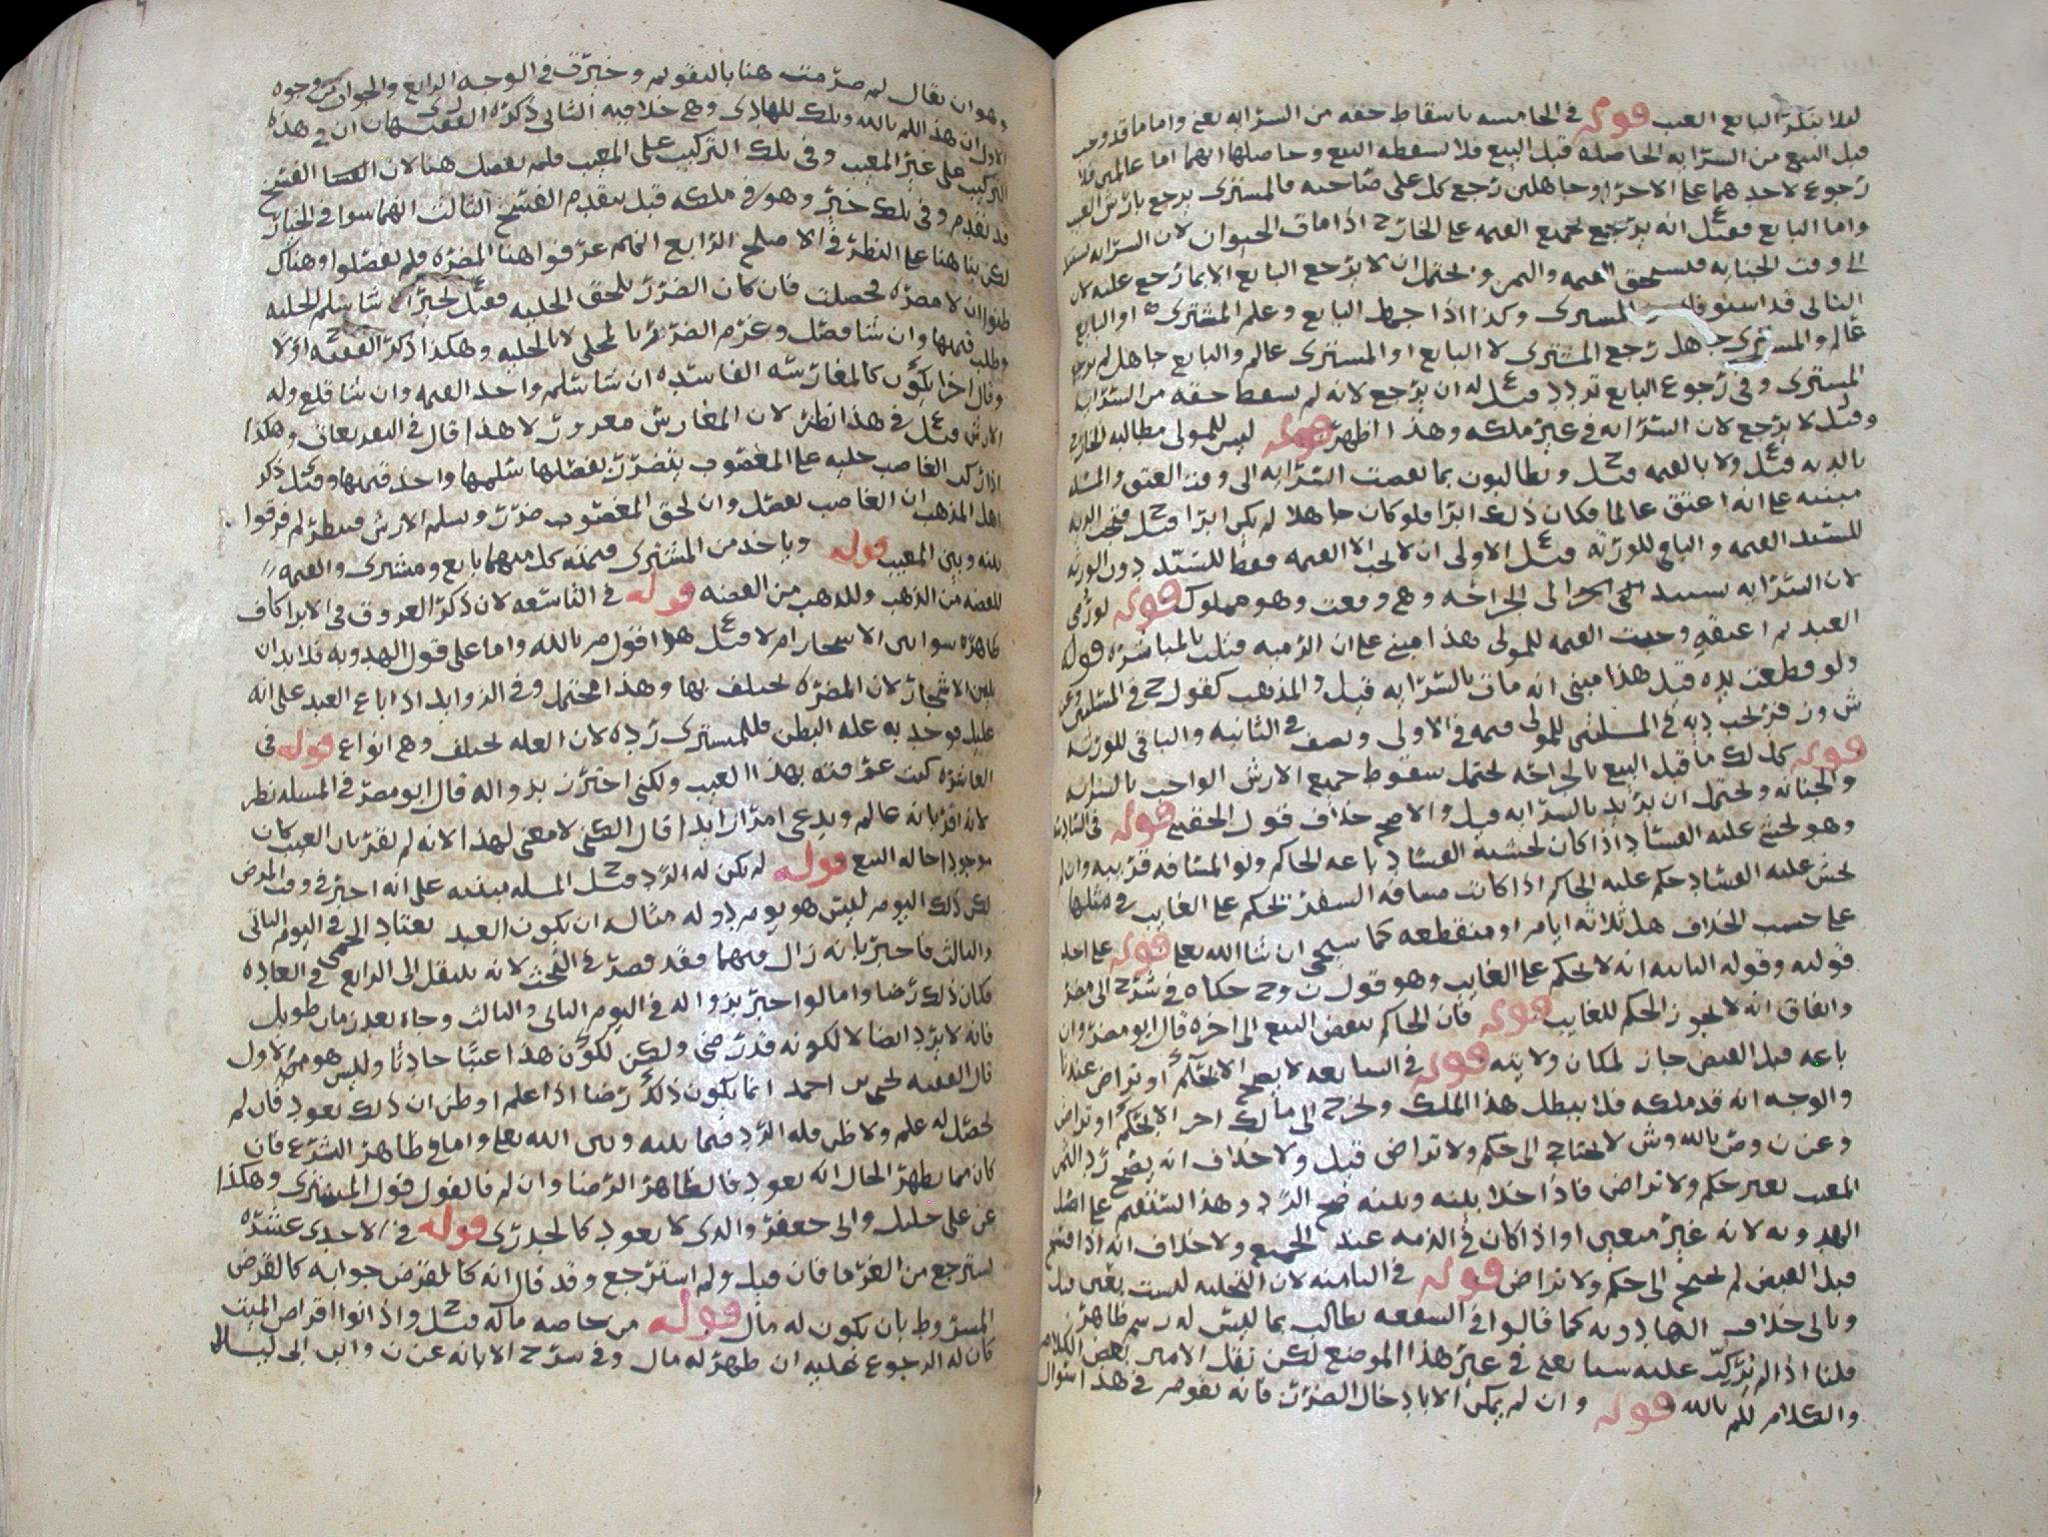 لىلا ىىكر البايع العىب قوله في الخامسه باسقاط حقه من السرايه يعني واما ما قد وجب
قبل البيع من السرايه الحاصله قبل البيع فلا يسقطه البيع وحاصلها انهما اما عالمين فلا
رجوع لاحدهما على الاخر او جاهلين رجع كل على صاحبه فالمشترى يرجع بارش العيب
واما البايع فقيل انه يرجع بجميع القيمه على الخارج اذا مات الحيوان لان السرايه
الى وقت الجنايه فيستحق القيمه والثمن ويحتمل ان لا يرجع البايع الا بما رجع عليه لان
الثاني قد استوفاه المشترى وكذا اذا جهل البايع وعلم المشترى او البايع
عالم والمشترى جاهل رجع المشترى لا البايع او المشترى عالم والبايع جاهل لم يرجع
المشترى وفي رجوع البايع تردد قيل له ان يرجع لانه لم يسقط حقه من السرايه
وقيل لا يرجع لان السرايه في غير ملكه وهذا اظهر قوله ليس للمولى مطالبه الجارح
بالديه قيل ولا بالقيمه قيل ويطالبون بما نقصت السرايه الى وقت العتق والمسله
مبنيه على انه اعتق عالما فكان ذلك ابرا فلو كان جاهلا لم يكن ابرا قيل فتجب الديه
للسيد القيمه والباقي للورثه قيل الاولى ان لا يجب الا القيمه فقط للسيد دون الورثه
لان السرايه تستند الى الجراحه وهي وقعت وهو مملوك قوله لو رمى
العبد ثم اعتقه وجبت القيمه للمولى هذا مبني على ان الرميه قتلت بالمباشره قوله
ولو قطعت يده قيل هذا مبني انه مات بالسرايه قيل والمذهب كقول ح في المسلتين عن
ش ون فر يجب ديه في المسلتين للمولى قيمه في الاولى ونصف في الثانيه والباقي للورثه
قوله كل لك ما قبل البيع بالجراحه يحتمل سقوط جميع الارش الواجب بالسرايه
والجنايه ويحتمل ان يريد بالسرايه قيل والاصح خلاف قول الحقيني قوله في السادسه
وهو يخشى عليه الفساد اذا كان لخشية الفساد باعه الحاكم ولو المسافه قريبه وان لم
يخش عليه الفساد حكم عليه الحاكم اذا كانت مسافه السفر يحكم على الغايب في مثلها
على حسب الخلاف هل ثلاثه ايام او منقطعه كما سيجي ان شا الله تعالى قوله على احد
قوليه وقوله الثاني انه لا يحكم على الغايب وهو قول ن وح حكاه في شرح
واتفاق انه لا يجوز الحكم للغايب قوله فان الحاكم ينقض البيع الى اخره قال ابو مضر وان
باعه قبل القبض جاز لمكان ولايته قوله في السابعه لا يصح الا بحكم او تراض عندنا
والوجه انه قد ملكه فلا يبطل هذا الملك ولا يخرج الى مالك اخر الا بحكم او تراض
وعن ن وص بالله وش لا يحتاج الى حكم ولا تراض قيل ولا خلاف انه يصح رد الثمن
المعيب بغير حكم ولا تراض فاذا خلا بينه وبينه صح الرد وهذا يستقيم على اصل
الهدويه لانه غير متعين او اذا كان في الذمه عند الجميع ولا خلاف انه اذا فسخ
قبل القبض لم يحتج الى حكم ولا تراض قوله في الثامنه لان التخليه ليست بقبض قيل
وياتي خلاف الهادويه كما قالوا في الشفعه يطالب بما ليس له رسم ظاهر
قلنا اذا لم يتركب عليه شيا يعني في غير هذا الموضع لكن نقل الامير بعض الكلام
والكلام للم بالله قوله وان لم يمكن الا بادخال الضرر فانه يقوم في هذا سؤال
وهو ان يقال لم صرحت هنا بالتقويم وخيرت في الوجه الرابع والجواب من وجوه
الاول ان هذا للم بالله وتلك للهادي وهي خلافيه الثاني ذكره الفقيهان ان في هذه
التركيب على غير المعيب وفي تلك التركيب على المعيب فلم يفصل هنا لان الفسخ
قد تقدم وفي تلك خير وهو في ملكه قبل تقدم الفسخ الثالث انهما سوا في الخيار
لكن بنا هنا على النظر في الاصلح الرابع انهم عرفوا هنا المضره فلم يفصلوا وهناك
ظنوا ان لا مضره فحصلت فان كان الضرر يلحق الحليه فقيل يخير ان شا سلم الحليه
وطلب قيمتها وان شا فصل وغرم الضرر بالمحلى لا بالحليه وهكذا ذكر الفقيه ح اولا
وقال اخرا يكون كالمغارسه الفاسده ان شا سلم واخذ القيمه وان شا قلع وله
الارش قيل في هذا نظر لان المغارس مغرور لا هذا قال في التقرير يعاق وهكذا
اذا ركب الغاصب حليه على المغصوب يتضرر بفصلها سلمها واخذ قيمتها وقيل ذكر
اهل المذهب ان الغاصب يفصل وان لحق المغصوب ضرر ويسلم الارش فينظر لم فرقوا
بينه وبين المعيب قوله وياخذ من المشترى قيمته كل منهما بايع ومشترى والقيمه
للفضه من الذهب وللذهب من الفضه قوله في التاسعه لان ذكر العروق في الابرا كاف
ظاهره سوا بين الاشجار ام لا قيل هذا قول م بالله واما على قول الهدويه فلا بد ان
يبين الاشجار لان المضره تختلف بها وهذا محتمل وفي الزوايد اذا باع العبد على انه
عليل فوجد به علة البطن فللمشترى رده لان العله تختلف وهي انواع قوله في
العاشره كنت عرفته بهذا العيب ولكني اخترت بزواله قال ابو مضر في المسله نظر
لانه اقر بانه عالم ويدعي امرا زايدا قال الكني لا معنى لهذا لانه لم يقر بان العيب كان
موجودا حاله البيع قوله لم يكن له الرد قيل المسله مبنيه على انه اخبر في وقت المرض
لكن ذلك اليوم ليس هو يوم دوله مثاله ان يكون العبد يعتاد الحمى في اليوم الثاني
والثالث فاخبر بانه زال فيهما فقد قصر في البحث لانه ينتقل الى الرابع في العاده
فكان ذلك رضا واما لو اخبر بزواله في اليوم الثاني والثالث وجاه بعد زمان طويل
فانه لا يرد ايضا لا لكونه قد رضي ولكن لكون هذا عيبا حادثا وليس هو الاول
قال الفقيه يحيى بن احمد انما يكون ذلك رضا اذا علم او ظن ان ذلك يعود فان لم
يحصل له علم ولا ظن فله الرد فيما بينه وبين الله تعالى واما في ظاهر الشرع فان
كان مما يظهر الحال انه يعود فالظاهر الرضا وان لم فالقول قول المشترى وهكذا
عن علي خليل وابي جعفر والذى لا يعود كالجدري قوله في الاحدى عشره
يسترجع من الغرما فان قيل ولم استرجع وقد قال انه كالقرض جوابه كالقرض
المشروط بان يكون له مال قوله من خاصه ماله قيل واذا نوا اقراض الميت
كان له الرجوع عليه ان ظهر له مال وفي شرح الابانه عن ن وابن ابي ليلى